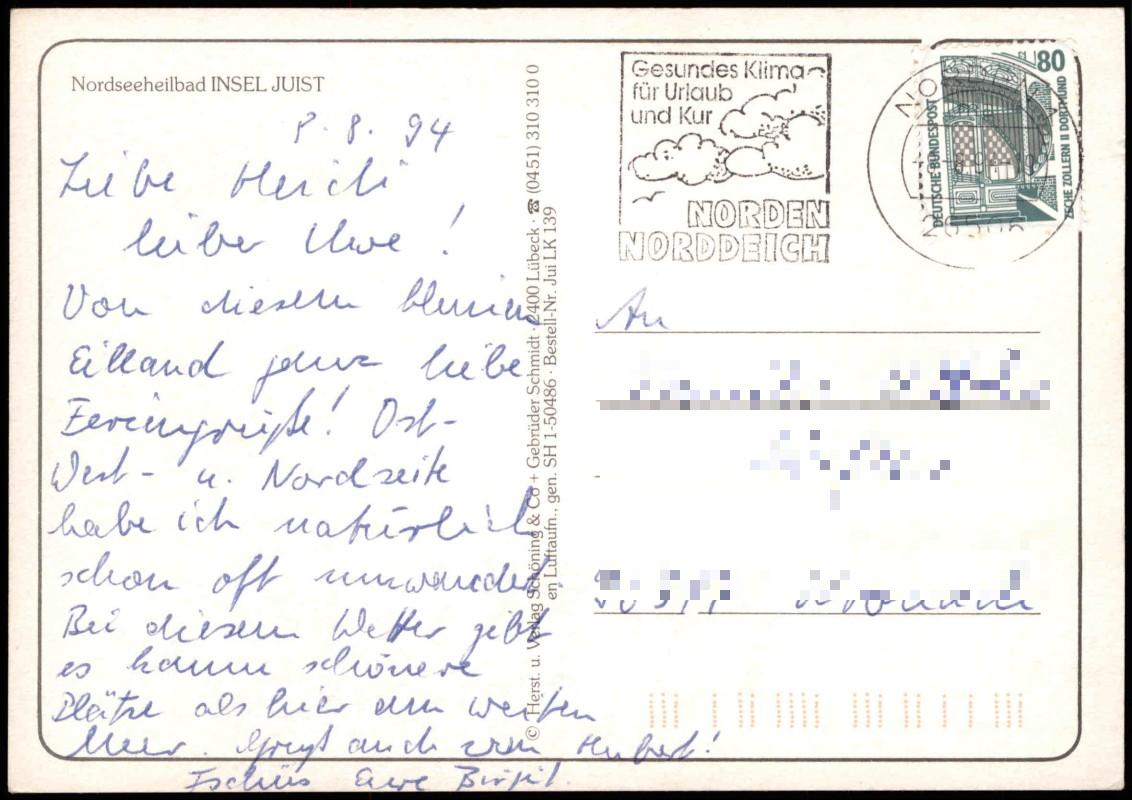 Nordseeheilbad INSEL JUIST
8. 8. 94
Liebe Heidi
lieber Uwe!
Von diesem kleinen
Eiland ganz liebe
Feriengrüße! Ost-
West- u. Nordseite
habe ich natürlich
schon oft umwandert.
Bei diesem Wetter gibt
es kaum schönere
Plätze als hier am weiten
Meer. Grüßt auch von Hubert!
Tschüs Eure Birgit.
© Herst. u. Verlag Schöning & Co + Gebrüder Schmidt · 2400 Lübeck · ☎ (0451) 310 310 0
en Luftaufn., gen. SH 1-50486 · Bestell-Nr. Jui LK 139
Gesundes Klima
für Urlaub
und Kur
NORDEN
NORDDEICH
80
DEUTSCHE BUNDESPOST
ZECHE ZOLLERN II DORTMUND
26506
An